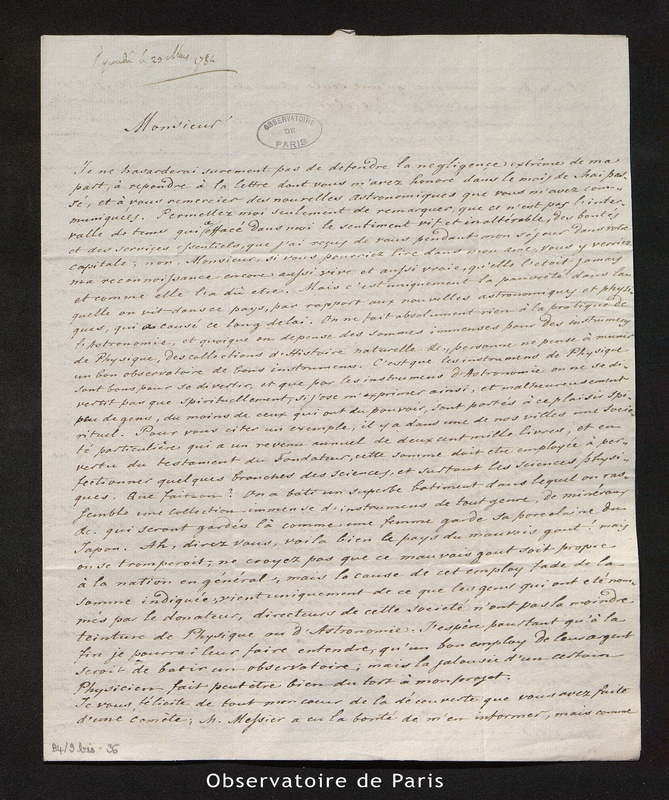 le 23 Mars 1784
Monsieur
OBSERVATOIRE
DE
PARIS
Je ne hasarderai surement pas de defendre la negligence extrême de ma
part, à repondre à la lettre dont vous m'avez honoré dans le mois de Mai pas-
sé, et à vous remercier des nouvelles Astronomiques que vous m'avez com-
muniquées. Permettez moi seulement de remarquer, que ce n'est pas l'inter-
valle de tems qui a effacé dans moi le sentiment vif et inaltérable, des bontés
et des services essentiels, que j'ai reçus de vous pendant mon séjour dans votre
capitale; non, Monsieur, si vous pourriez lire dans mon ame, vous y verriez
ma reconnoissance encore aussi vive et aussi vraie, qu'elle l'etoit jamais
et comme elle l'a dû etre. Mais c'est uniquement la pauvreté dans la
quelle on vit dans ce pays, par rapport aux nouvelles astronomiques et physi-
ques, qui a causé ce long delai. On ne fait absolument rien à la pratique de
l'Astronomie, et quoique on depense des sommes immenses pour des instrumens
de Physique, des collections d'Histoire naturelle &c., personne ne pense à munir
un bon observatoire de bons instrumens. C'est que les instrumens de Physique
sont bons pour se divertir, et que par les instrumens d'Astronomie on ne se di-
vertit pas que spirituellement, si j'ose m'exprimer ainsi, et malheureusement
peu de gens, du moins de ceux qui ont du pouvoir, sont portés à ce plaisir spi-
rituel. Pour vous citer un exemple; il y a dans une de nos villes une socie-
té particulière qui a un revenu annuel de deux cent mille livres, et en
vertu du testament du Fondateur, cette somme doit etre employée à per-
fectionner quelques branches des Sciences, et surtout les Sciences physi-
ques. Que fait-on? On a bâti un superbe batiment dans lequel on ras-
semble une collection immense d'instrumens de tout genre, de mineraux
&c. qui seront gardés là comme une femme garde sa porcelaine du
Japon. Ah, direz vous, voila bien le pays du mauvais gout! mais
on se tromperoit; ne croyez pas que ce mauvais gout soit propre
à la nation en général, mais la cause de cet employ fade de la
somme indiquée, vient uniquement de ce que les gens qui ont eté nom-
més par le donateur, directeurs de cette societé n'ont pas la moindre
teinture de Physique ou d'Astronomie. J'espère pourtant qu'à la
fin je pourrai leur faire entendre, qu'un bon employ de leur argent
seroit de batir un observatoire; mais la jalousie d'un certain
Physicien fait peut etre bien du tort à mon projet.
Je vous félicite de tout mon cœur de la découverte que vous avez faite
d'une comète; M. Messier a eu la bonté de m'en informer, mais comme
Observatoire de Paris